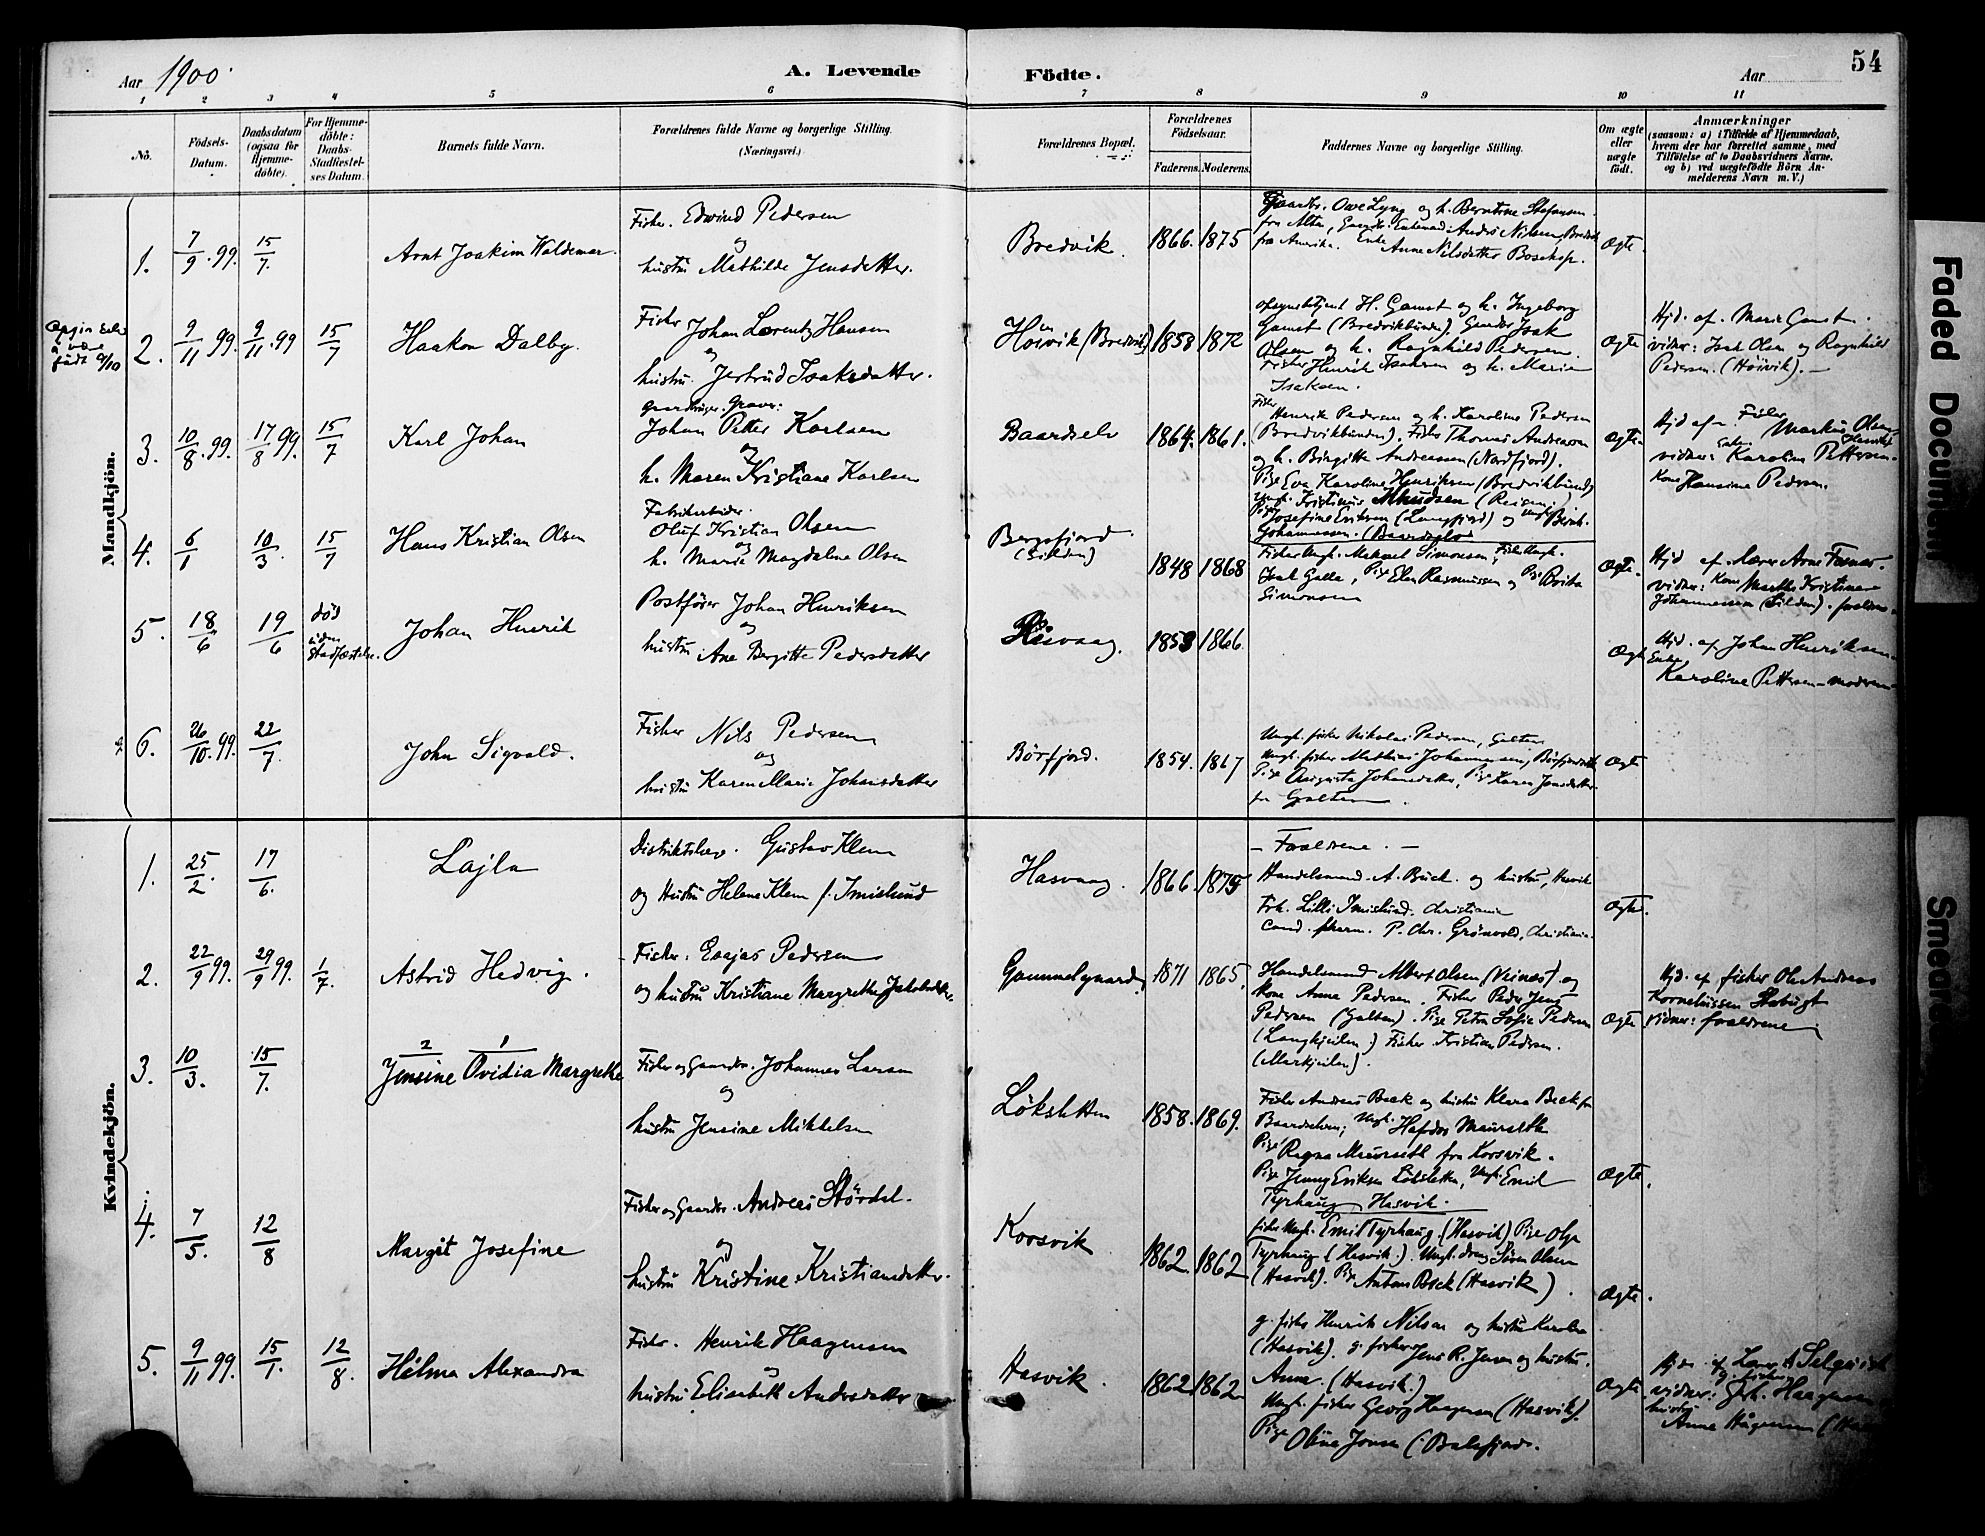 Aar 1900.
A. Levende Födte.
Aar
54
1 2 3 4 5 6 7 8 9 10 11
No.
Födsels-Datum.
Daabsdatum (ogsaa for Hjemme-döbte).
For Hjemme-döbte: Daabs-Stadfæstel-ses Datum.
Barnets fulde Navn.
Forældrenes fulde Navne og borgerlige Stilling. (Næringsvei.)
Forældrenes Bopæl.
Forældrenes Födselsaar.
Faderens. Moderens.
Faddernes Navne og borgerlige Stilling.
Om ægte eller uægte født.
Anmærkninger
(saasom: a) i Tilfælde af Hjemmedaab,
hvem der har forrettet samme, med
Tilföielse af to Daabsvidners Navne,
og b) ved uægtefödte Börn An-
melderens Navn m. V.)
Mandkjön.
1. 7/9.99. 15/7. Arnt Joakim Waldemar.
Fisker. Edvind Pedersen
og
hustru Mathilde Jensdatter.
Bredvik. 1866. 1875
Gaardbr. Owe Lyng og h. Berntine Stefansen
fra Alta, Enkemand Andrs Nilsen, Bredvik
fra Amerika. Enke Anne Nilsdatter Bosekop.
Ægte.
født 9/10
2. 9/11 99. 9/11.99 15/7 Haakon Dalby.
Fisker Johan Lorentz Hansen
og
hustru. Jertrud Isaksdatter.
(Bredvik) 1858 1872
H. Gamst og h. Ingeborg
Gamst (Bredvikbunden). Isak
Olsen og h. Ragnhild Pedersen.
Fisker Henrik Isaksen og h. Marie
Isaksen.
Ægte
Hjd. af. Marie Gamst.
vidner: Isak Olsen og Ragnhild
Pedersen. (Høivik).
3. 10/8.99. 17/8 99. 15/7 Karl Johan
Johan Petter Karlsen
og
h. Maren Kristiane Karlsen
Baardselv 1864. 1861.
Fisker
Henrik Pedersen og h. Karoline Pedersen
(Bredvikbunden). Fisker Thomas Andreasen
og h. Birgitte Andreassen (Nordfjord).
Pige Eva Karoline Henriksen (Bredvikbund)
Josefine Eriksen (Langfjord) og
Johannessen. (Baardselv)
Ægte
Hjd af Markus Olsen
vidner: Karoline Pettersen
Kone Hansine Pedersen.
4. 6/1 10/3. 15/7 Hans Kristian Olsen
Fabrikarbeider.
Oluf Kristian Olsen
og
h. Marie Magdalene Olsen
Bergsfjord (Silden) 1848 1868
Simonsen
Isak Galla, Pige Elen Rasmussen og Pige Brita
Simonsen
Ægte.
Hjd af Lærer Arne
vidner: Kone Marthe Kristine
Johannessen (Silden).
5. 18/6 19/6 død uden stadfæstelse. Johan Henrik
Postfører Johan Henriksen
og
hustru Ane Bergitte Pedersdatter
1853 1866
Ægte
Hjd. af Johan Henriksen
Enke
Karoline Pettersen
6. 26/10.99. 22/7. John Sigvald.
Fisker Nils Pedersen
og
hustru Karen Marie Johansdatter
Børfjord. 1854. 1867
Ungk. fisker Nikolai Pedersen, Galten
Ungk. fisker Mathias Johannessen, Børfjord
Pige Augusta Johansdatter, Pige Karen Jensdatter
fra Galten.
Ægte
Kvindekjön.
1. 25/2. 17/6. Lajla
Distriktslæge. Gustav Klem
og Hustru Helene Klem f. Imislund
Hasvaag. 1866. 1875
- Forældrene. -
Handelsmand. A. Buck. og hustru, Hasvik
Frk. Lilli Imislund. Christiania
cand. pharm. P. Chr. Grønvold, Christiania.
Ægte.
2. 22/9 99. 29/9 99. 1/7. Astrid Hedvig.
Fisker. Esajas Pedersen
og hustru Kristiane Margrethe Jakobsdatter.
Gammelgaard 1871 1865.
Handelsmand Albert Olsen (Veines) og
Kone Anne Pedersen. Fisker Peder Jens
Pedersen (Galten). Pige Petra Sofie Pedersen
(Langkjeilen.) Fisher Kristian Pedersen.
(Markjeilen).
Ægte
Hjd. af fisker Ole Andreas
Kornelius​sen
vidner: forældrene
3. 10/3. 15/7. 2 1
Jensine Ovidia Margrethe
Fisker og Gaardbr. Johannes Larsen
og
hustru Jensine Mikkelsen
Løksletten 1858. 1869.
Fisker Andreas Beck og hustru Klara Beck fra
Baardselven; Ungk. Haldor Mauseth
Pige Ragna Mauseth fra Korsvik.
Pige Jenny Eriksen Løksletten, Ungk. Emil
Tyrhaug Hasvik.
Ægte.
4. 7/5. 12/8 Margit Josefine
Fisker og Gaardbr. Andreas Størdal.
og
hustru Kristine Kristiansdatter.
Korsvik 1862. 1862
fisker Ungk. Emil Tyrhaug. (Hasvik) Pige Olga
Tyrhaug (Hasvik.). Ungk. dreng Søren Olsen
(Hasvik). Pige Anton Beck (Hasvik).
Ægte.
5. 9/11 99. 15/1. 12/8. Hilma Alexandra
Fisker. Henrik Haagensen
og
hustru Elisabeth Andersdatter
Hasvik. 1862 1862
g. fisker Henrik Nilsen og hustru Karoline
(Hasvik). g. fisker Jens R. Jensen og hustru.
Anne. (Hasvik.)
Ungk. fisker Georg Haagensen (Hasvik).
Pige Oline Jensen
Ægte
vidner: Haagensen
hustru
Anne Hågensen
Faded Document
Smeared